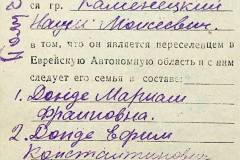 ся гр. Каменецкий
Мовсеевич.
в том, что он является переселенцем в
Еврейскую Автономную область и с ним
следует его семья в составе:
1. Донде Мариам
Фраимовна.
2. Донде Ефрим
Константинович